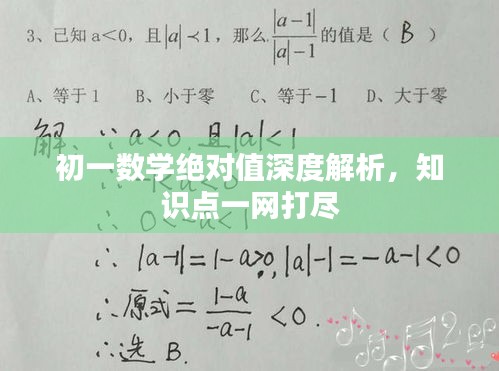 3、己知 a<0，且|a|≺1，那么 |a−1|/|a|−1 的值是（ B ）
A、等于 1 B、小于零 C、等于−1 D、大于零
解: ∵ a<0, 且|a|<1
初一数学绝对值深度解析，知
识点一网打尽
∴ |a-1|=1-a>0, |a|-1=-a-1<0
∴原式= 1-a/-a-1 <0.
∴选 B.